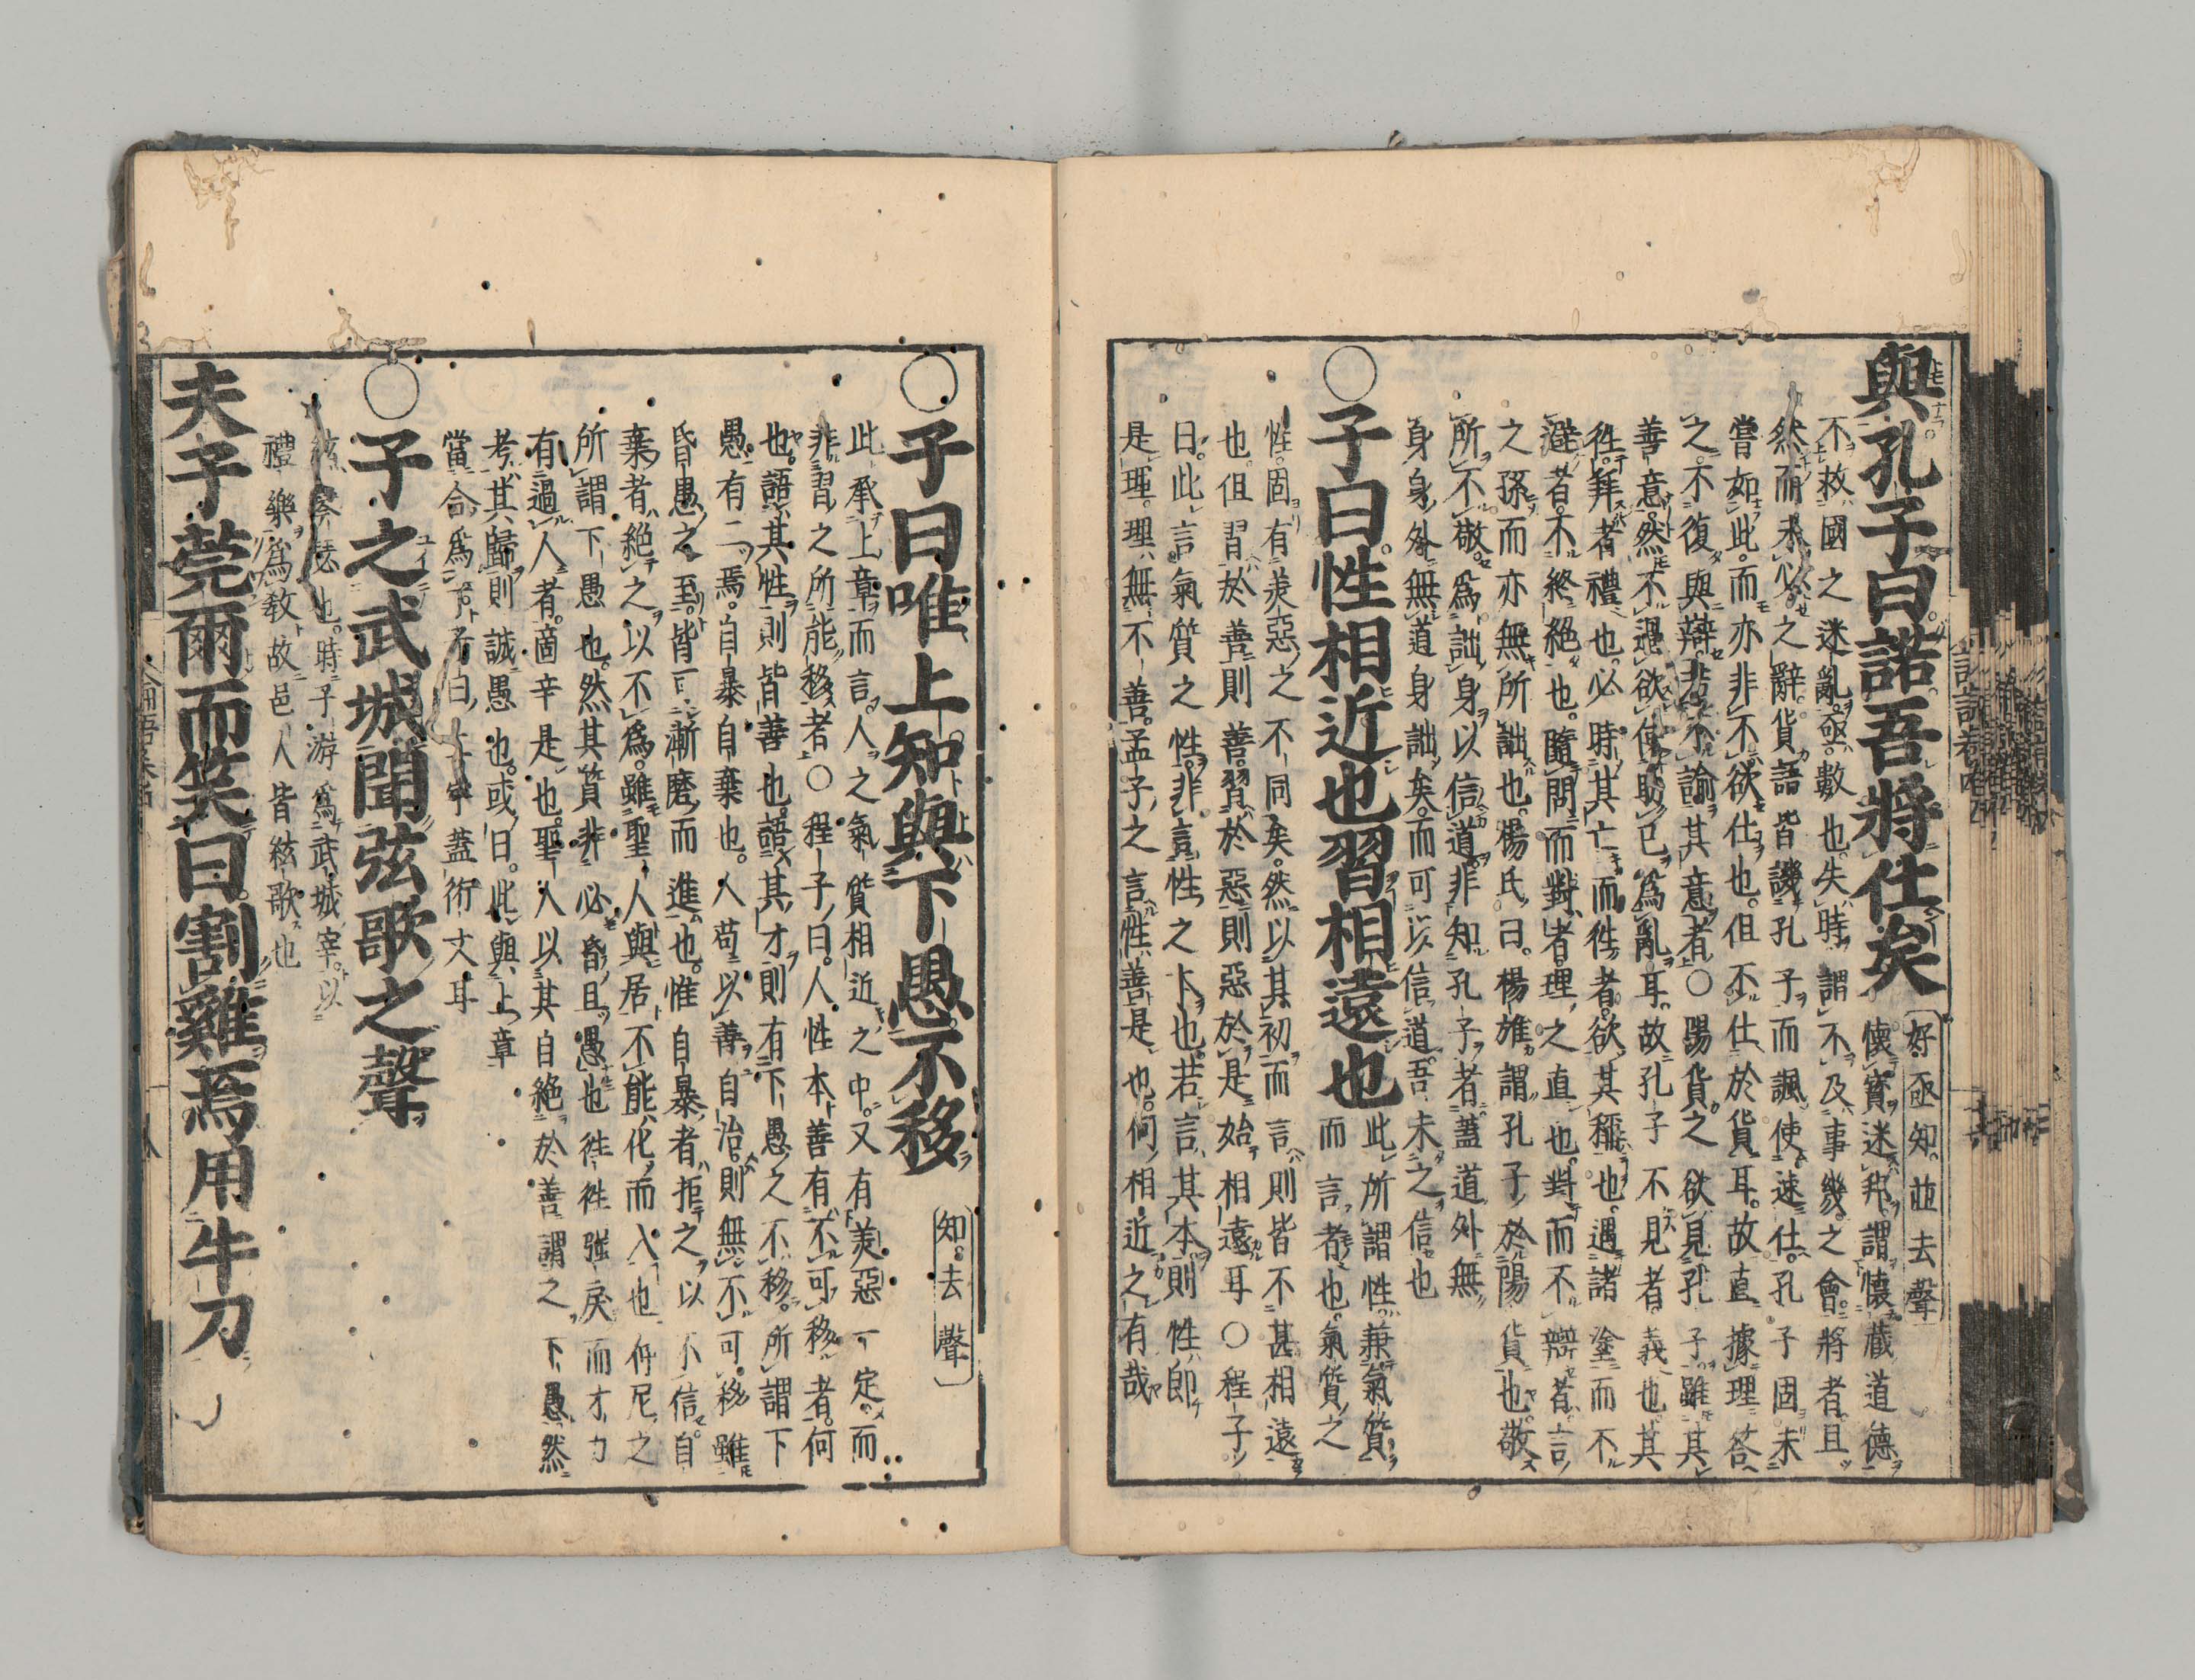 與孔子曰諾吾將仕矣
好亟知並去聲
懷寶迷邦謂懷藏道德
不救國之迷亂亟數也失時謂不及事幾之會將者且
然而未必之辭貨語皆譏孔子而諷使速仕孔子固未
嘗如此而亦非不欲仕也但不仕於貨耳故直據理答
之不復與辯若不諭其意者○陽貨之欲見孔子雖其
善意然不過欲使助己爲亂耳故孔子不見者義也其
徃拜者禮也必時其亡而徃者欲其稱也遇諸塗而不
避者不終絕也隨問而對者理之直也對而不辯者言
之孫而亦無所詘也楊氏曰楊雄謂孔子於陽貨也敬
所不敬爲詘身以信道非知孔子者蓋道外無
身身外無道身詘矣而可以信道吾未之信也
○子曰性相近也習相遠也
此所謂性兼氣質
而言者也氣質之
性固有美惡之不同矣然以其初而言則皆不甚相遠
也但習於善則善習於惡則惡於是始相遠耳○程子
曰此言氣質之性非言性之本也若言其本則性即
是理理無不善孟子之言性善是也何相近之有哉
○子曰唯上知與下愚不移
知去聲
此承上章而言人之氣質相近之中又有美惡一定而
非習之所能移者○程子曰人性本善有不可移者何
也語其性則皆善也語其才則有下愚之不移所謂下
愚有二焉自暴自棄也人苟以善自治則無不可移雖
昏愚之至皆可漸磨而進也惟自暴者拒之以不信自
棄者絕之以不爲雖聖人與居不能化而入也仲尼之
所謂下愚也然其質非必昏且愚也徃徃强戾而才力
有過人者商辛是也聖人以其自絕於善謂之下愚然
考其歸則誠愚也或曰此與上章
當合爲一子曰二字蓋衍文耳
○子之武城聞弦歌之聲
絃琴瑟也時子游爲武城宰以
禮樂爲敎故邑人皆絃歌也
夫子莞爾而笑曰割雞焉用牛刀